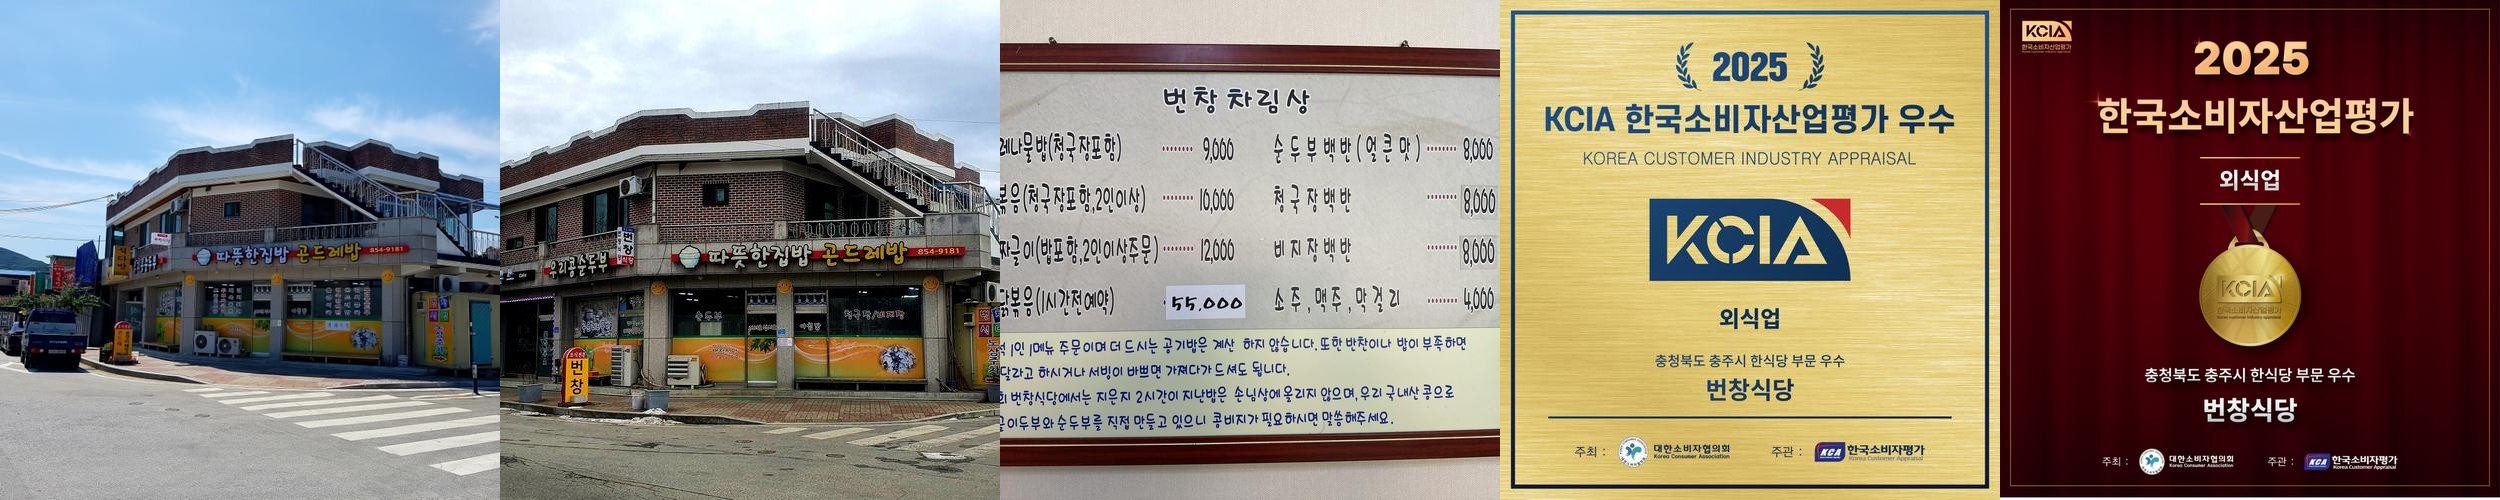 따뜻한집밥 곤드레밥 854-9181
우리콩순두부
번창
따뜻한집밥 곤드레밥 854-9181
순두부
청국장/비지장
번창
번창차림상
레나물밥(청국장포함) 9,000
볶음(청국장포함,2인이상) 10,000
자글이(밥포함,2인이상주문) 12,000
닭볶음(1시간전예약) 55,000
순두부백반(얼큰맛) 8,000
청국장백반 8,000
비지장백반 8,000
소주,맥주,막걸리 4,000
1인 1메뉴 주문이며 더 드시는 공기밥은 계산 하지 않습니다. 또한 반찬이나 밥이 부족하면
달라고 하시거나 서빙이 바쁘면 가져다가 드셔도 됩니다.
번창식당에서는 지은지 2시간이 지난밥은 손님상에 올리지 않으며, 우리 국내산 콩으로
글이두부와 순두부를 직접 만들고 있으니 콩비지가 필요하시면 말씀해주세요.
2025
KCIA 한국소비자산업평가 우수
KOREA CUSTOMER INDUSTRY APPRAISAL
KCIA
외식업
충청북도 충주시 한식당 부문 우수
번창식당
주최 : 대한소비자협의회
Korea Consumer Association
주관 : KCA 한국소비자평가
Korea Customer Appraisal
KCIA
한국소비자산업평가
2025
한국소비자산업평가
외식업
KCIA
한국소비자산업평가
충청북도 충주시 한식당 부문 우수
번창식당
주최 : 대한소비자협의회
Korea Consumer Association
주관 : KCA 한국소비자평가
Korea Customer Appraisal